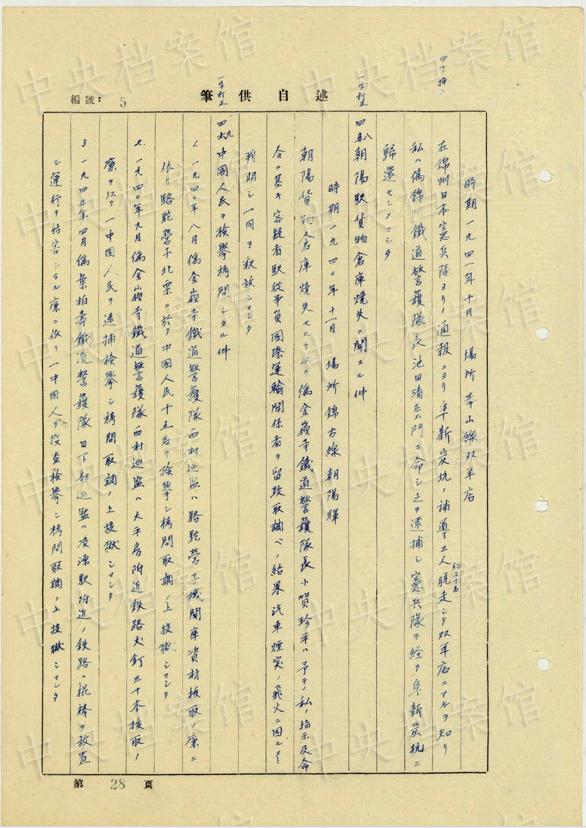 述自供筆
編號: 5
時期 一九四一年十月 場所 奉山線双羊店
在錦州日本憲兵隊ヨリノ通報ニヨリ阜新炭坑ノ補導工人約三十名脱走シタ双羊店ニアルヲ知リ
私ハ偽錦州鐵道警護隊長池田清左エ門ニ命シ之ヲ逮捕シ憲兵隊ヲ経テ阜新炭坑ニ
歸還セシメタ
四八、朝陽駅貨物倉庫燒失ニ関スル件
時期 一九四〇年十一月 場所 錦古線朝陽驛
朝陽貨物倉庫燒失セルヲ以テ偽金嶺寺鐵道警護隊長小賀珍平ハ予テノ私ノ指示及命
令ニ基キ容疑者駅從事員国際運輸関係者ヲ留致取調ベノ結果汽車煙突ノ飛火ニ因ルモノト
判明シ一同ヲ釈放シマシタ
四九、中国人民ヲ検擧拷問シタル件
1、一九四〇年八月偽金嶺寺鐵道警護隊西村巡監ハ駱駝營子機関庫資材核取ノ廉ニ
依リ駱駝營子北票ニ於テ中国人民十五名ヲ検擧シ拷問取調ノ上投獄シマシタ
2、一九四〇年九月偽金嶺寺鐵道警護隊西村巡監ハ大平房附近鉄路犬釘三十本核取ノ
廉ヲ以テ一中國人民ヲ逮捕検擧シ拷問取調ノ上投獄シマシタ
3、一九四〇年四月偽葉柏壽鐵道警護隊日下部巡監ハ凌源駅附近ノ鉄路ニ枕棒ヲ放置
シ運行ヲ妨害シタル廉ニ依リ一中国人ヲ搜査検擧シ拷問取調ノ上投獄シマシタ
第 28 頁
中央档案馆